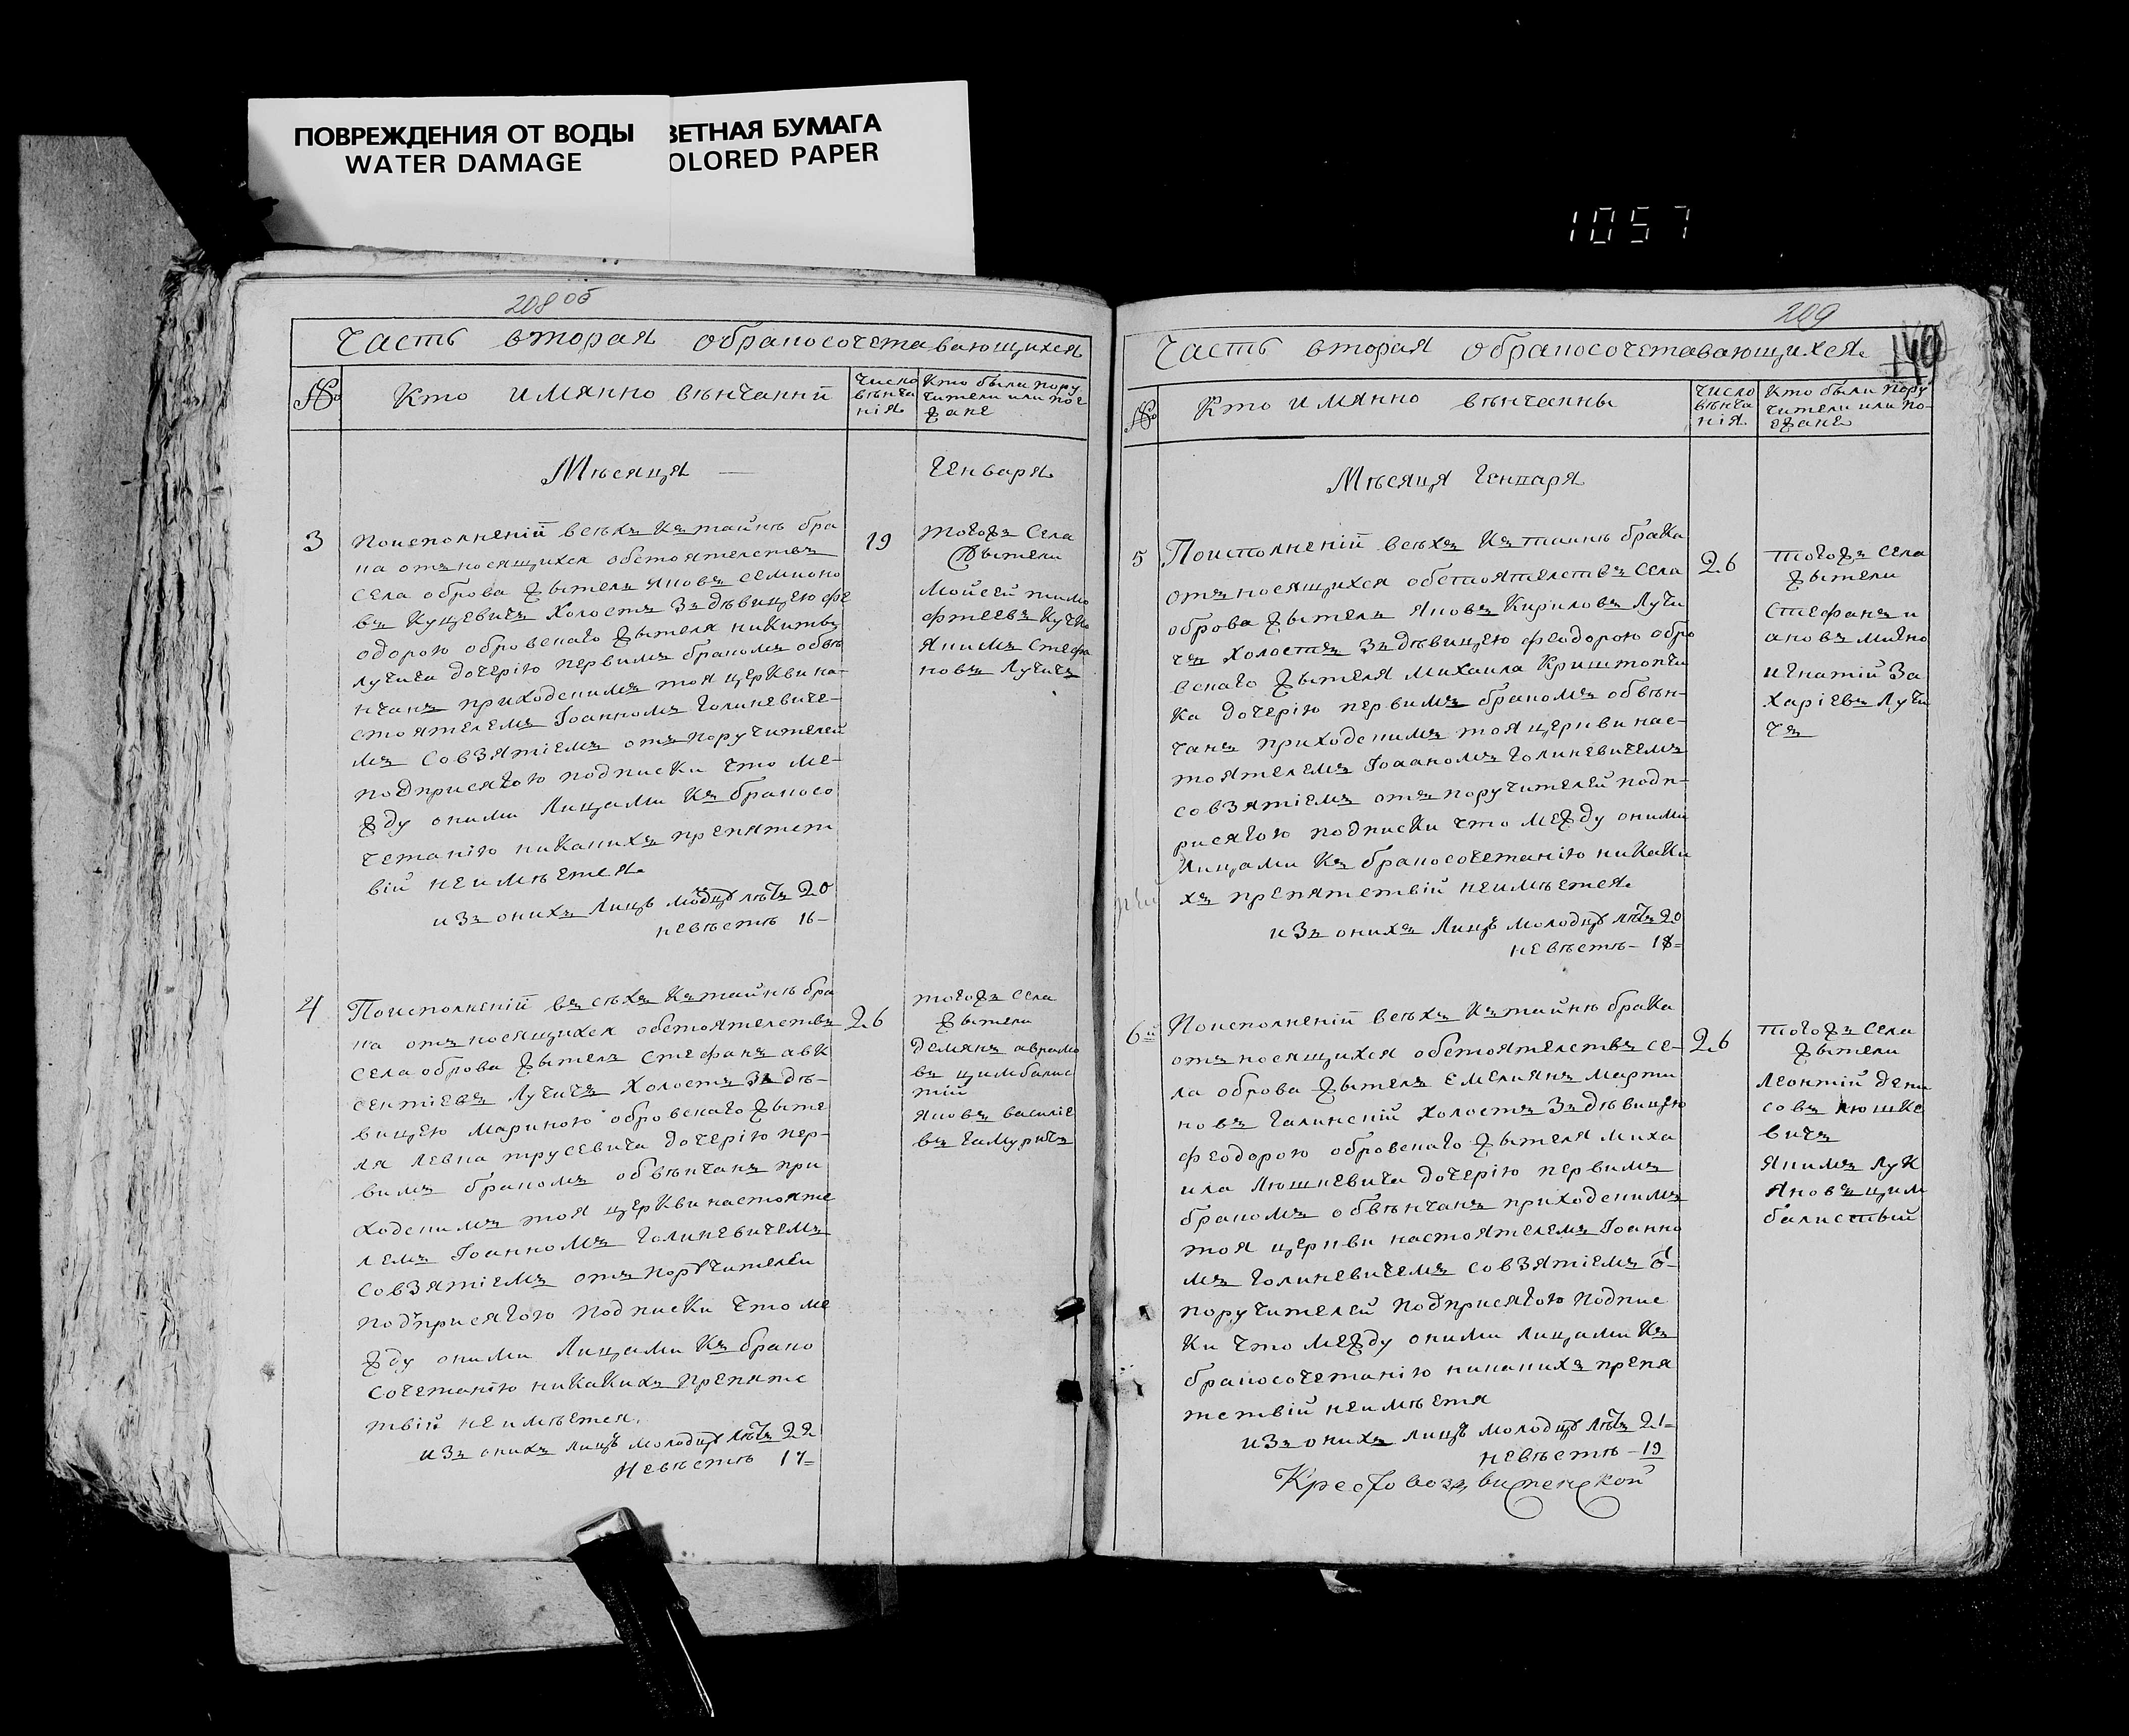 ПОВРЕЖДЕНИЯ ОТ ВОДЫ
WATER DAMAGE
ВЕТНАЯ БУМАГА
OLORED PAPER
1057
208 об
Часть вторая обракосочетавающихся
№
Кто имянно вѣнчанни
Число
вѣнча
нія
Кто были пору
чители или пое
зжане
Мѣсяца —
Генваря
3
Поисполненій всѣхъ Къ тайнѣ бра
ка отъ носящихся обстоятелствъ
села оброва жытель яковъ семионо
въ Куцевичъ Холостъ Зъ дѣвицею фе
одорою обровскаго жытеля никиты
лучича дочерію первимъ бракомъ обвѣ
нчанъ приходскимъ тоя церкви на-
стоятелемъ Іоанномъ Голиневиче-
мъ Совзятіемъ отъ поручителей
подприсягою подписки что ме-
жду оними Лицами Къ бракосо
четанію никакихъ препятст
вій неимѣетея.
иЗъ онихъ Лицъ молодцу лѣтъ 20
невѣстѣ 16-
19
тогожъ Села
Жытели
Мойсей тимо
фтеевъ Кучко
Якимъ стефа
новъ Лучичъ
4
Поисполненій въ сѣхъ Къ тайнѣ бра
ка отъ носящихся обстоятелствъ
Села оброва жытель Стефанъ авк
сентіевъ Лучичъ Холостъ Зъ дѣ-
вицею Мариною обровскаго жыте
ля левка трусевича дочерію пер-
вимъ бракомъ обвѣнчанъ при
ходскимъ тоя церкви настояте
лемъ Іоанномъ Голиневичемъ
Совзятіемъ отъ поручителей
подприсягою подписки что ме
жду оними Лицами Къ брако
сочетанію никакихъ препятс
твій неимѣетея.
иЗъ онихъ лицъ молодцу лѣтъ 22
Невѣстѣ 17=
26
тогожъ села
жытели
демянъ аврамо
въ цимбалис
тій
Яковъ василіе
въ Гамуричъ
209
Часть вторая обракосочетавающихся.
№
Кто имянно вѣнчанны
Число
вѣнча
нія
Кто были пору
чители или по-
езжане
Мѣсяца Генваря
5
Поисполненій всѣхъ Къ таинѣ брака
отъ носящихся обстоятелствъ села
оброва жытель яковъ Кириловъ Лучи
чъ Холостъ Зъ дѣвицею феодорою обро
вскаго жытеля Михаила Криштопчи
ка дочерію первимъ бракомъ обвѣн-
чанъ приходскимъ тоя церкви нас-
тоятелемъ Іоаномъ Голиневичемъ
совзятіемъ отъ поручителей подп-
рисягою подписки что между оними
Лицами Къ бракосочетанію никаки
хъ препятствій неимѣетея.
иЗъ онихъ Лицъ молодцу лѣтъ 20
невѣстѣ- 18=
26
тогожъ села
жытели
Стефанъ и
ановъ
игнатій За
харіевъ Лучи
чъ
6й
Поисполненій всѣхъ Къ тайнѣ брака
отъ носящихся обстоятелствъ се-
ла оброва жытель Емелиянъ Марти
новъ Галинскій Холостъ Зъ дѣвицею
феодорою обровскаго жытеля миха
ила Люшкевича дочерію первимъ
бракомъ обвѣнчанъ приходскимъ
тоя церкви настоятелемъ Іоанно
мъ Голиневичемъ совзятіемъ от-
поручителей подприсягою подпис
ки что между оними лицами Къ
бракосочетанію никакихъ препя
тствій неимѣетя
иЗъ онихъ лицъ молодцу лѣтъ 21=
невѣстѣ-19
Крестовоздвиженской
26
тогожъ села
жытели
леонтій дени
совъ люшке
вичъ
Якимъ лук
яновъ цим
балистый